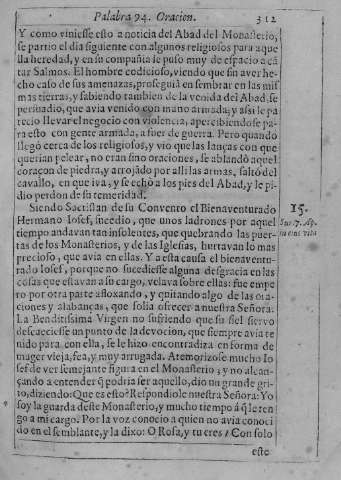 Palabra 94. Oracion. 312
Y como viniesse esto a noticia del Abad del Monasterio,
se partio el dia siguiente con algunos religiosos para aque
lla heredad, y en su compañia le puso muy de espacio a cã
tar Salmos. El hombre codicioso, viendo que sin aver he-
cho caso de sus amenazas, proseguia en sembrar en las mis
mas tierras, y sabiendo tambien de la venida del Abad, se
persuadio, que avia venido con mano armada, y assi le pa
recio llevar el negocio con violencia, apercibiendose pa-
ra esto con gente armada, a fuer de guerra. Pero quando
llegó cerca de los religiosos, y vio que las lanças con que
querian pelear, no eran sino oraciones, se ablandò aquel
coraçon de piedra, y arrojado por alli las armas, saltó del
cavallo, en que iva, y se echò a los pies del Abad, y le pi-
dio perdon de su temeridad.
Siendo Sacristan de su Convento el Bienaventurado
Hermano Iosef, sucedio, que unos ladrones por aquel
tiempo andavan tan insolentes, que quebrando las puer-
tas de los Monasterios, y de las Iglesias, hurtavan lo mas
precioso, que avia en ellas. Y a esta causa el bienaventu-
rado Iosef, porque no sucediesse alguna desgracia en las
cosas que estavan a su cargo, velava sobre ellas: fue empe
ro por otra parte afloxando, y quitando algo de las ora-
ciones y alabanças, que solia ofrecer a nuestra Señora.
La Benditissima Virgen no sufriendo que su fiel siervo
descaeciesse un punto de la devocion, que siempre avia te
nido para con ella, se le hizo encontradiza en forma de
muger vieja, fea, y muy arrugada. Atemorizose mucho Io
sef de ver semejante figura en el Monasterio; y no alcan-
çando a entender q̃ podria ser aquello, dio un grande gri-
to, diziendo: Que es esto? Respondiole nuestra Señora: Yo
soy la guarda deste Monasterio, y mucho tiempo á q̃ le ten
go a mi cargo. Por la voz conocio a quien no avia conoci
do en el semblante, y la dixo: O Rosa, y tu eres? Con solo
esto
15.